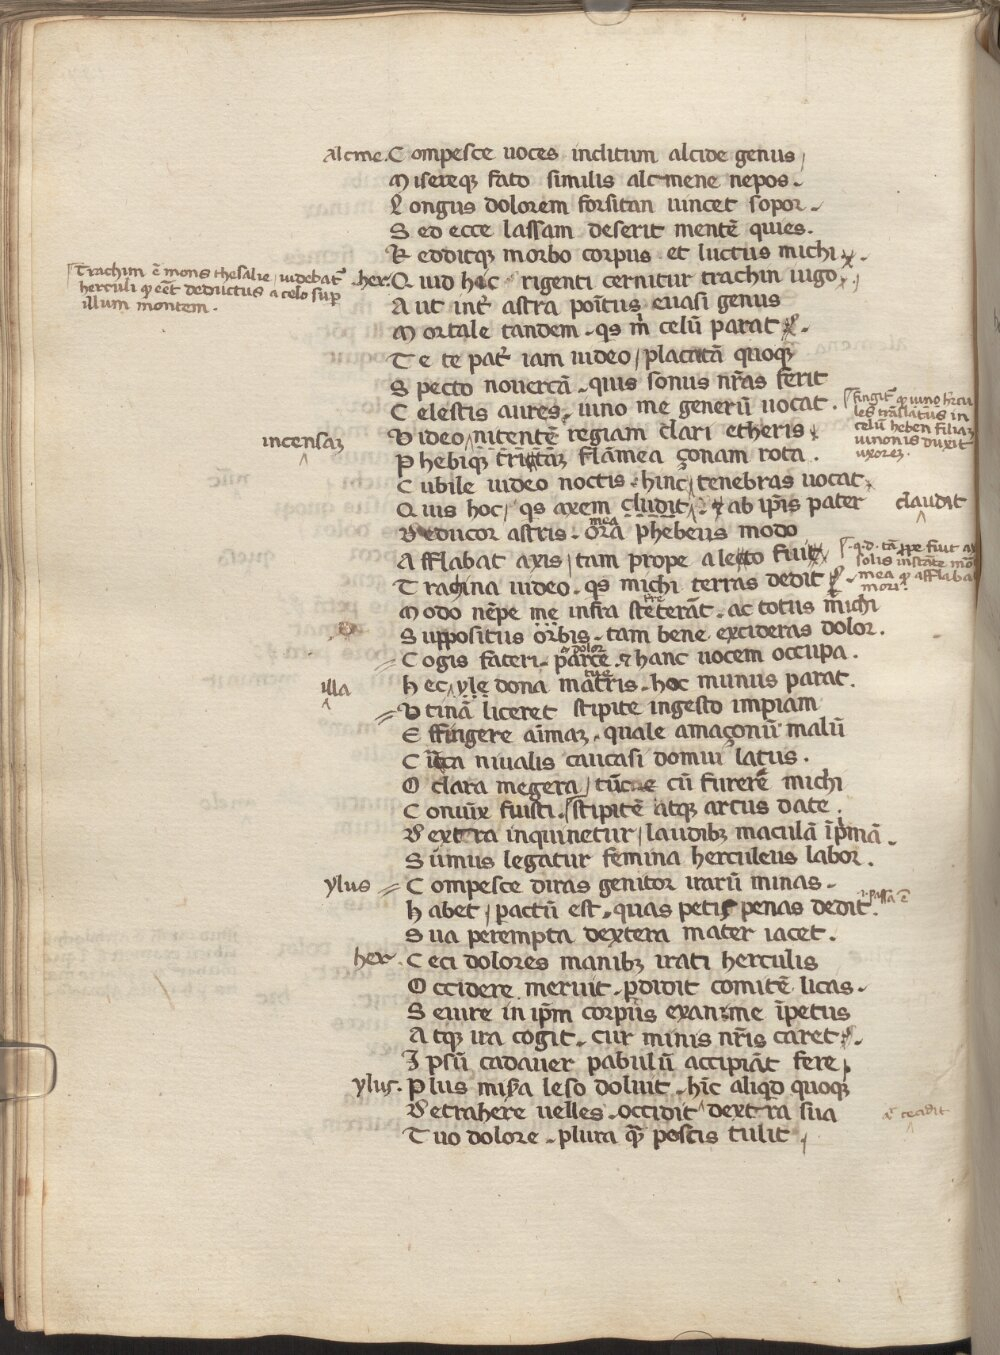 alcme. Compesce uoces inclitum alcide genus
Misereqꝫ fato similis alcmene nepos.
Longus dolorem forsitan uincet sopor.
Sed ecce lassam deserit mentē quies.
Redditqꝫ morbo corpus et luctus michi.
Trachim ē mons thesalie uidebat᷑
herculi ꝙ eēt deductus a celo sup
illum montem.
her. Quid hoc rigenti cernitur trachin iugo
Aut int᷑ astra poītus euasi genus
Mortale tandem. qs m̄ celū parat.
Te te pat᷑ iam uideo placatā quoqꝫ
Specto nouercā. quis sonus nr̄as ferit
Celestis aures. iuno me generū uocat.
fingit᷑ ꝙ iuno hercu
les trāslatus in
celū heben filiaꝫ
iunonis duxit
uxoreꝫ.
incensaꝫ
Video nitentē regiam clari etheris
Phebiqꝫ tritaꝫ flāmea çonam rota.
Cubile uideo noctis. hinc tenebras uocat
Quis hoc, qs axem cludit. & ab ip̄is pater
claudit
Deducor astris. ora mea phebeus modo
Afflabat axis tam prope a leto fui
.q.d. tā ꝓpe fiut a
solis instāte mo
mea ꝙ afflaba
mori.
Trachina uideo. qs michi terras dedit
Modo nēpe me infra steterāt. ac totus michi
Suppositus orbis. tam bene excideras dolor.
Cogis fateri. parce & hanc uocem occupa.
o dolor
illa
hec yle dona matris. hoc munus parat.
Vtinā liceret stipite ingesto impiam
Effringere aīmaꝫ. quale amaçonū malū
Circa niualis caucasi domui latus.
O clara megera, tūcne cū furerē michi
Coniūx fuisti. stipitē atqꝫ artus date.
Dextra inquinetur, laudibꝫ maculā īp̄mā.
Sūmus legatur femina herculeus labor.
ylus Compesce diras genitor irarū minas.
habet, pactū est. quas petis penas dedit.
.i. passa ē
Sua perempta dextera mater iacet.
her. Ceci dolores manibꝫ irati herculis
Occidere meruit. ꝑdidit comitē licas.
Seuire in ip̄m corpus exanime īpetus
Atqꝫ ira cogit. cur minis nr̄is caret.
Ipsū cadauer pabulū accipiāt fere
ylus. Plus misꝫa leso doluit. hīc aliqd quoqꝫ
Detrahere uelles. occidit dextra sua
Tuo dolore. plura qꝫ poscis tulit